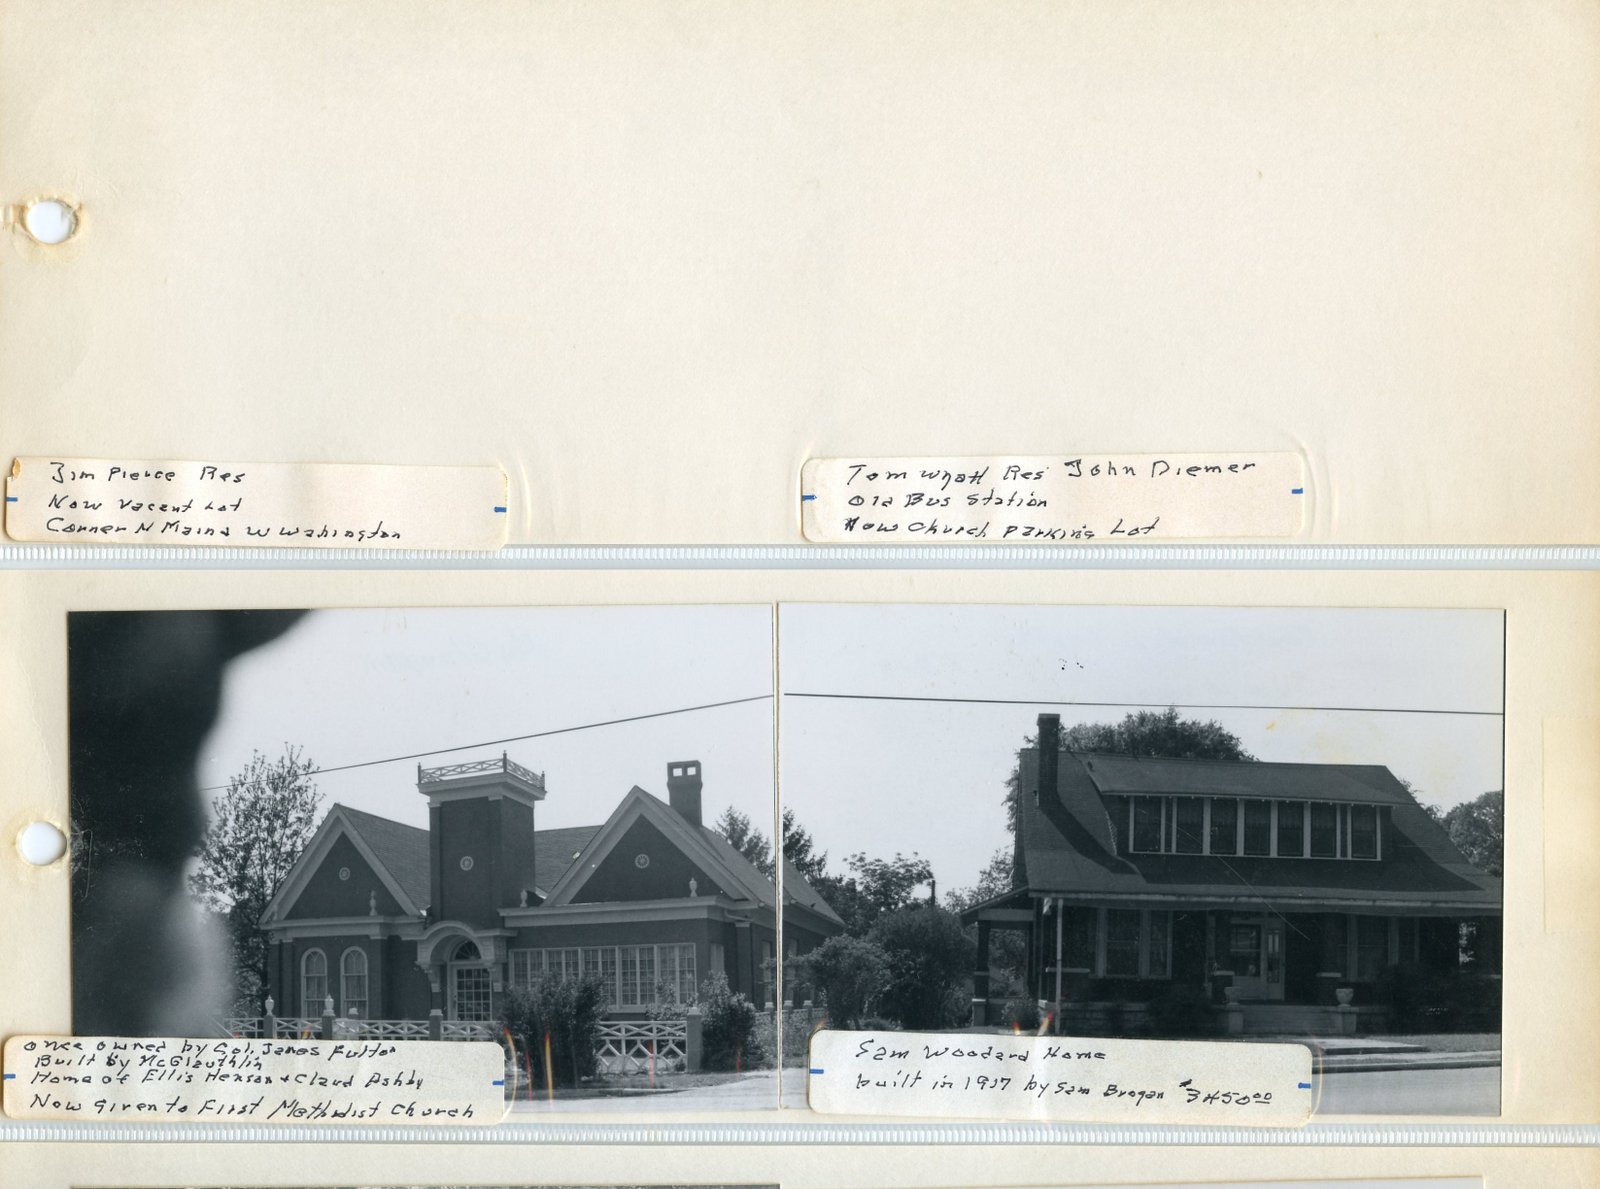 Jim Pierce Res
Now Vacant Lot
Corner N Main & W Wahington
Tom Wyatt Res John Diemer
Old Bus Station
Now Church Parking Lot
Once owned by Col. James Fulton
Built by McGlauthlin
Home of Ellis Henson + Claud Ashby
Now given to First Methodist Church
Sam Woodard Home
built in 1917 by Sam Brogan $3450.00